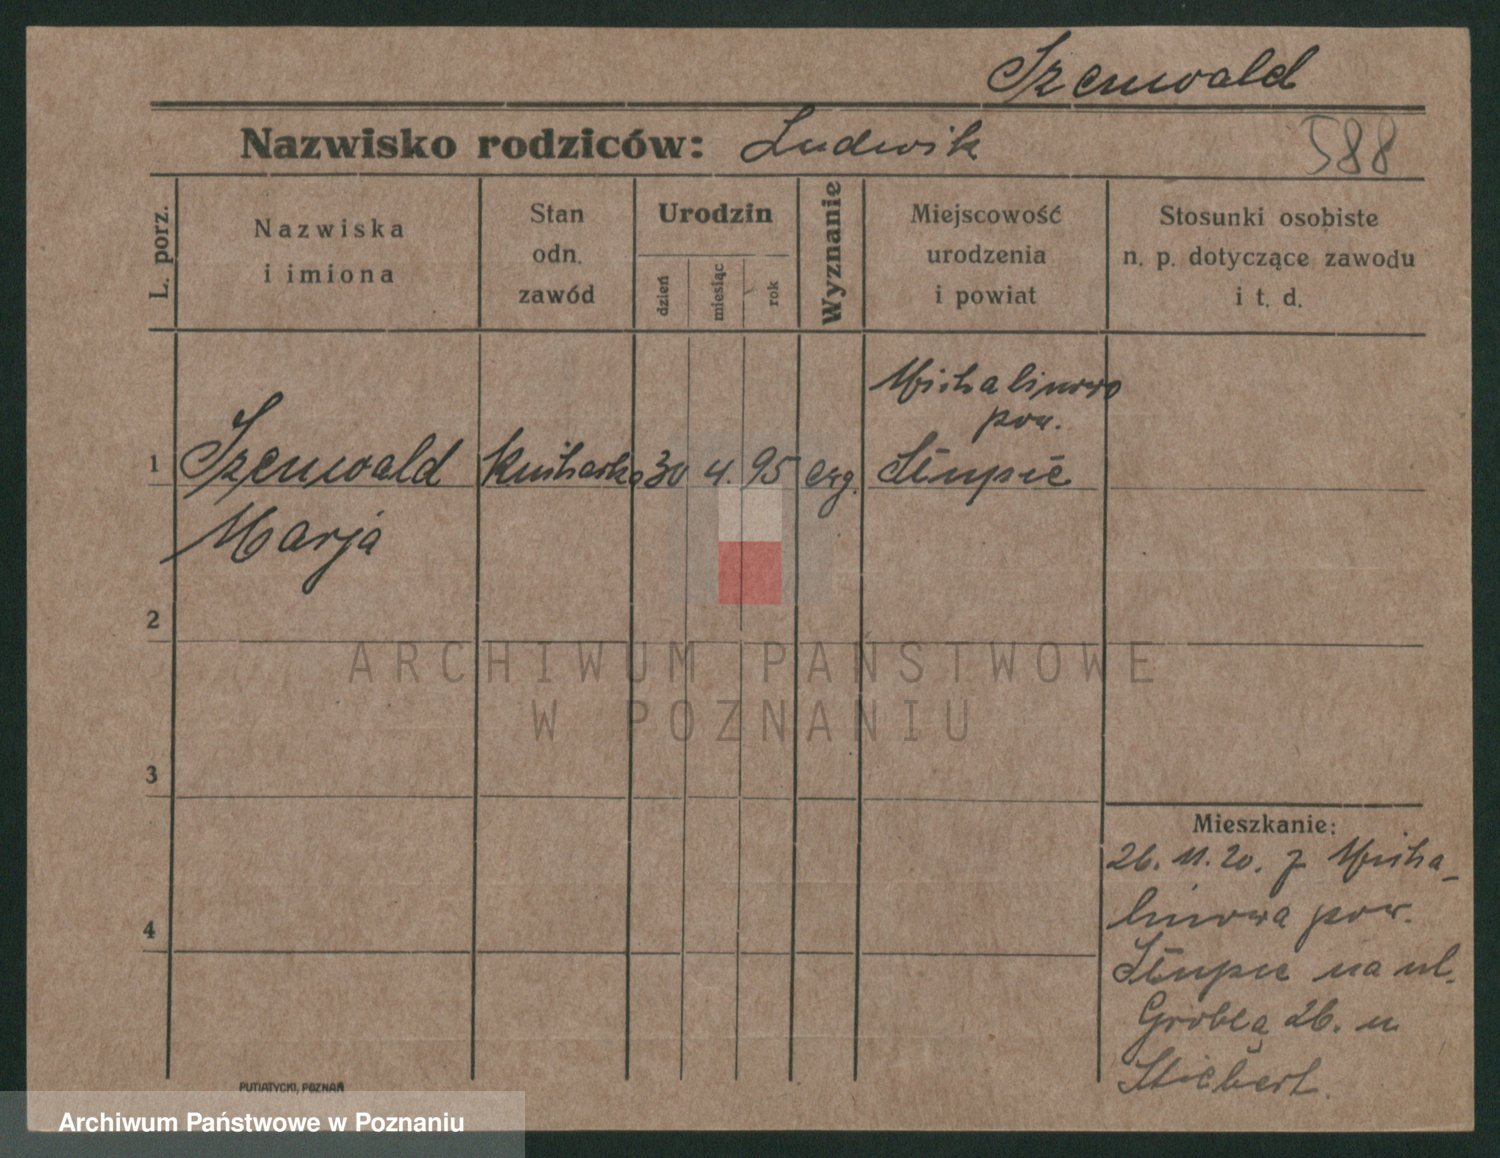 Szenwald
Nazwisko rodziców: Ludwik
588
L. porz.
Nazwiska
i imiona
Stan
odn.
zawód
Urodzin
dzień
miesiąc
rok
Wyznanie
Miejscowość
urodzenia
i powiat
Stosunki osobiste
n. p. dotyczące zawodu
i t. d.
Michalinowo
pow.
1 Szenwald kucharka 30 4. 95 ewg. Słupce
Marja
2
ARCHIWUM PAŃSTWOWE
W POZNANIU
3
Mieszkanie:
26. 11. 20. z Micha-
linowa pow.
4
Słupce na ul.
Groblą 26. u
Stiebert.
PUTIATYCKI, POZNAŃ
Archiwum Państwowe w Poznaniu